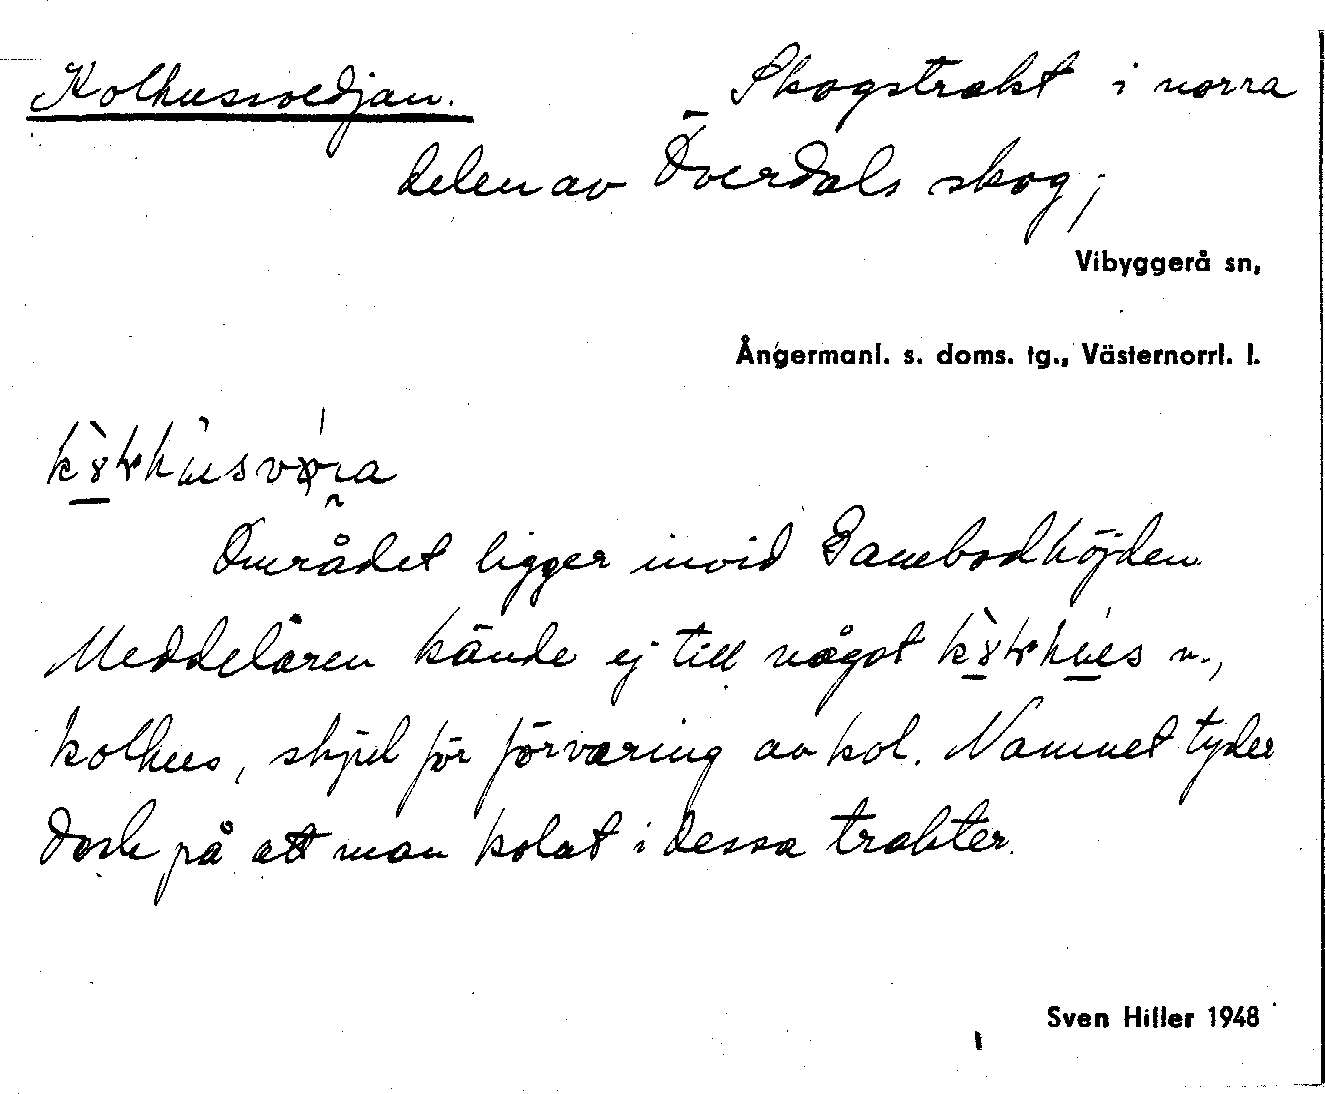 Kolhusvedjan. Skogstrakt i norra
delen av Överdals skog;
Vibyggerå sn,
Ångermanl. s. doms. tg., Västernorrl. l.
Området ligger invid Gambodhöjden.
Meddelaren kände ej till något n.,
kolhus, skjul för förvaring av kol. Namnet tyder
dock på att man kolat i dessa trakter.
Sven Hiller 1948